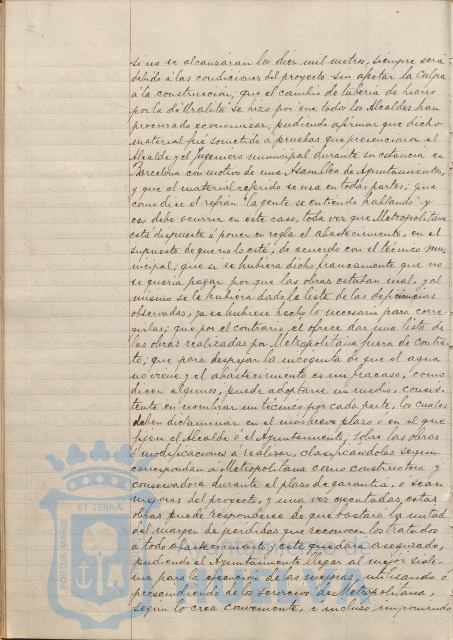 si no se alcanzaran lo diez mil metros, siempre será
debido á las condiciones del proyecto sin afectar la culpa
á la construcción; que el cambio de tuberia de hierro
por la de Uralita se hizo por que todos los Alcaldes han
procurado economizar, pudiendo afirmar que dicho
material fué sometido á pruebas que presenciaron el
Alcalde y el Ingeniero municipal durante su estancia en
Barcelona con motivo de una Asamblea de Ayuntamientos,
y que el material referido se usa en todas partes; que
como dice el refrán "la gente se entiende hablando" y
eso debe ocurrir en este caso, toda vez que Metropolitana
está dispuesta á poner en regla el abastecimiento, en el
supuesto de que no lo esté, de acuerdo con el técnico mu-
nicipal; que si se hubiera dicho francamente que no
se queria pagar por que las obras estaban mal, y al
mismo se le hubiera dado la lista de las deficiencias
observadas, ya se hubiese hecho lo necesario para corre-
girlas; que por el contrario, el ofrece dar una lista de
las obras realizadas por Metropolitana fuera de contra-
to; que para despejar la incognita de que el agua
no viene y el abastecimiento es un fracaso, como
dicen algunos, puede adoptarse un medio, consis-
tente en nombrar un técnico por cada parte, los cuales
deben dictaminar en el mas breve plazo ó en el que
fijen el Alcalde ó el Ayuntamiento, sobre las obras
ó modificaciones á realizar, clasificandolas segun
correspondan á Metropolitana como constructora y
conservadora durante el plazo de garantia, ó sean
mejoras del proyecto, y una vez ejecutadas, estas
obras puede responderse de que bastará la mitad
del margen de pérdidas que reconocen los tratados
á todo abastecimiento y este quedará asegurado,
pudiendo el Ayuntamiento llegar al mejor siste-
ma para la ejecución de las mejoras, utilizando ó
prescindiendo de los servicios de Metropolitana,
segun lo crea conveniente, é incluso imponiendo
PORTUS MARIS ET TERRÆ
Ayuntamiento de